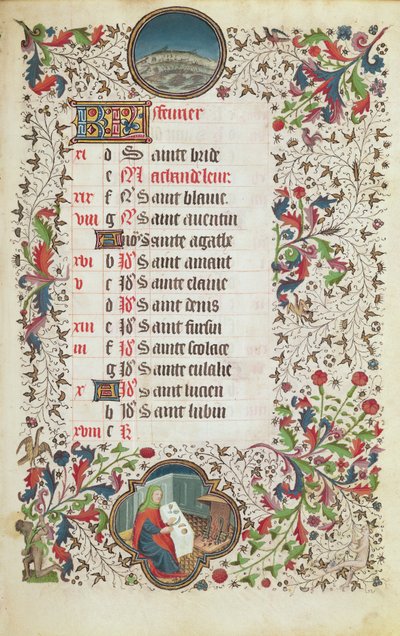 KL feurier
xi d Sainte bride
e Machandeleur
xix f N Saint blaiue
viii g N Saint auentin
A no Sainte agathe
xvi b Id Saint amant
v c Id Sainte elaine
d Id Saint denis
xiii e Id Saint fursin
iii f Id Sainte scolace
g Id Sainte eulalie
x A Id Saint lucien
b Id Saint lubin
xviii c K